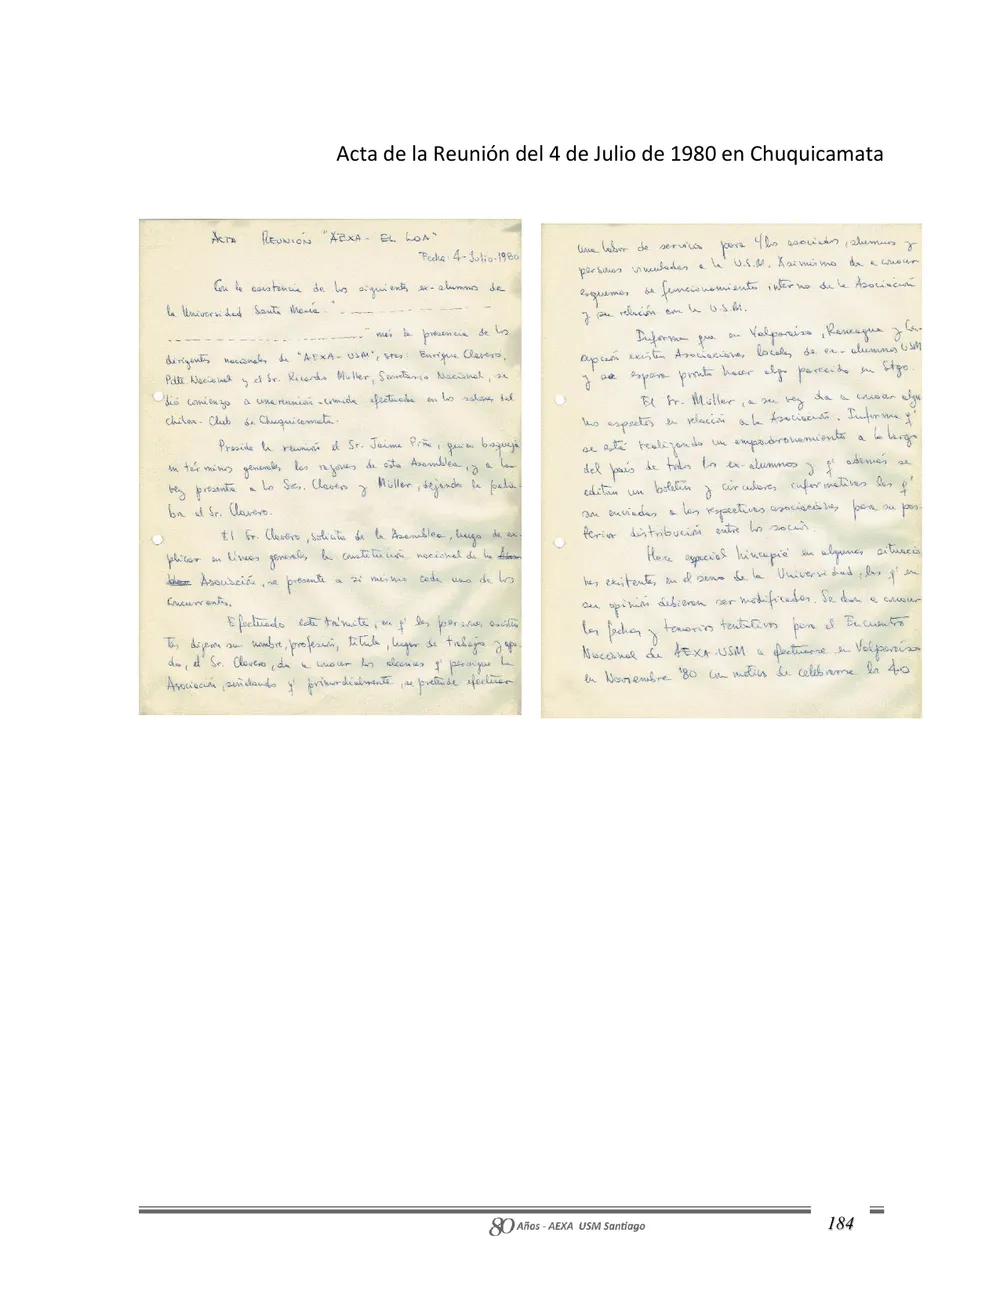 Acta de la Reunión del 4 de Julio de 1980 en Chuquicamata
ACTA REUNIÓN "AEXA - EL LOA"
Fecha: 4-Julio-1980
Con la asistencia de los siguientes ex-alumnos de
la Universidad Santa María: "
" más la presencia de los
dirigentes nacionales de "AEXA-USM", sres: Enrique Clavero,
Pdte Nacional y el Sr. Ricardo Müller, Secretario Nacional, se
dió comienzo a una reunión-comida efectuada en los salones del
Chilex-Club de Chuquicamata.
Preside la reunión el Sr. Jaime Piña, quien bosqueja
en términos generales las razones de esta Asamblea, y a la
vez presenta a los Sres. Clavero y Müller, dejando la pala-
bra al Sr. Clavero.
El Sr. Clavero, solicita de la Asamblea, luego de ex-
plicar en líneas generales la constitución nacional de la
Asociación, se presente a sí mismo cada uno de los
concurrentes.
Efectuado este trámite, en q' las personas asisten-
tes dijeron su nombre, profesión, título, lugar de trabajo y apo-
do, el Sr. Clavero, da a conocer los alcances q' persigue la
Asociación, señalando q' primordialmente, se pretende efectuar
una labor de servicio para c/ los asociados, alumnos y
personas vinculadas a la U.S.M. Asimismo da a conocer
esquemas de funcionamiento interno de la Asociación
y su relación con la U.S.M.
Informa que en Valparaíso, Rancagua y Con-
cepción existen Asociaciones locales de ex-alumnos USM
y se espera pronto hacer algo parecido en Stgo.
El Sr. Müller, a su vez da a conocer algu-
nos aspectos en relación a la Asociación. Informa q'
se está realizando un empadronamiento a lo largo
del país de todos los ex-alumnos y q' además se
editan un boletín y circulares informativas las q'
son enviadas a las respectivas asociaciones para su pos-
terior distribución entre los socios.
Hace especial hincapié en algunas situacio-
nes existentes en el seno de la Universidad, las q' en
su opinión debieran ser modificadas. Se dan a conocer
las fechas y temarios tentativos para el Encuentro
Nacional de AEXA-USM a efectuarse en Valparaíso
en Noviembre '80 con motivo de celebrarse los 40
80 Años - AEXA USM Santiago
184